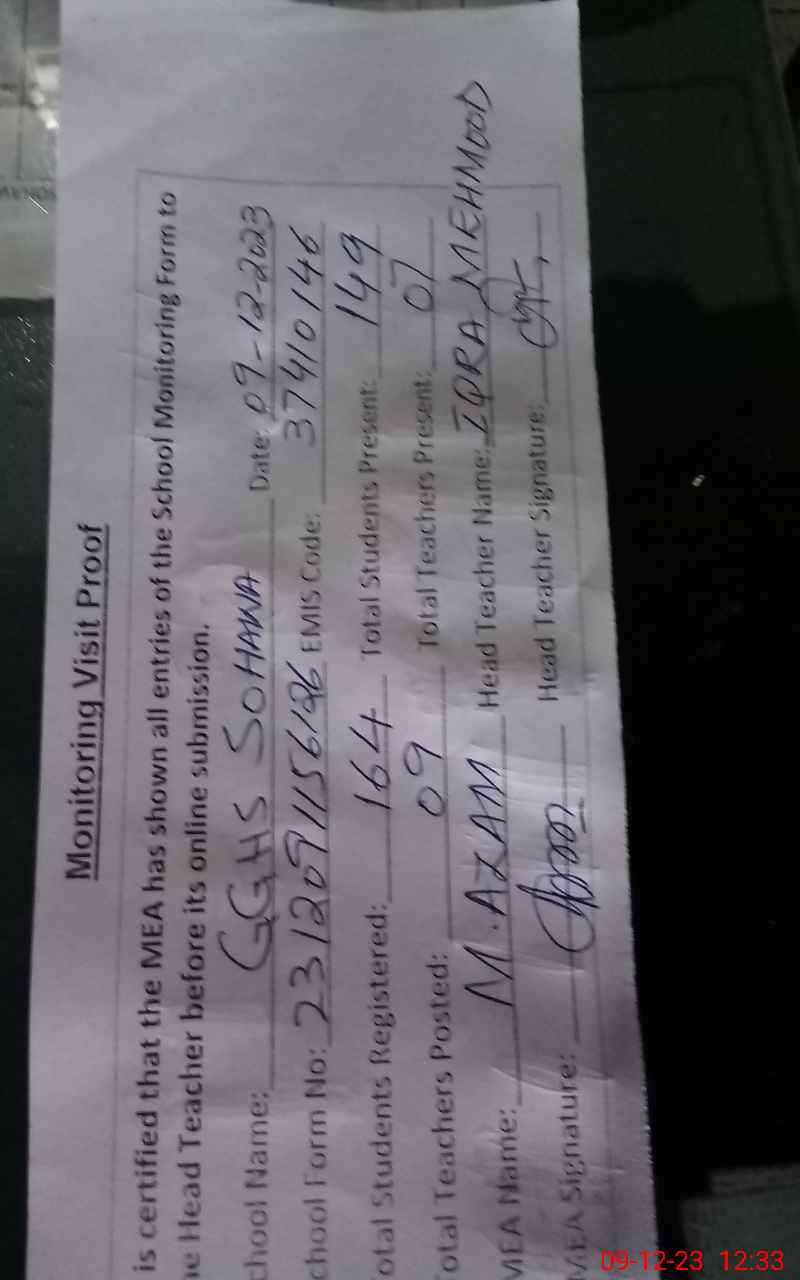 Monitoring Visit Proof
is certified that the MEA has shown all entries of the School Monitoring Form to
he Head Teacher before its online submission.
chool Name: GGHS SOHAWA Date: 09-12-2023
chool Form No: EMIS Code: 37410146
otal Students Registered: 164 Total Students Present: 149
otal Teachers Posted: 09 Total Teachers Present: 07
MEA Name: M. AZAM Head Teacher Name: IQRA MEHMOOD
MEA Signature: Head Teacher Signature:
09-12-23 12:33